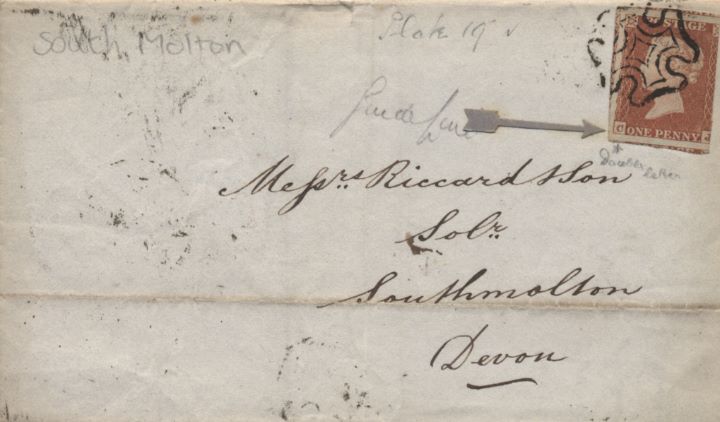 South Molton
Plate 19
Guide line
POSTAGE
C ONE PENNY J
Double
letter
Messrs. Riccard & Son
Solr.
Southmolton
Devon